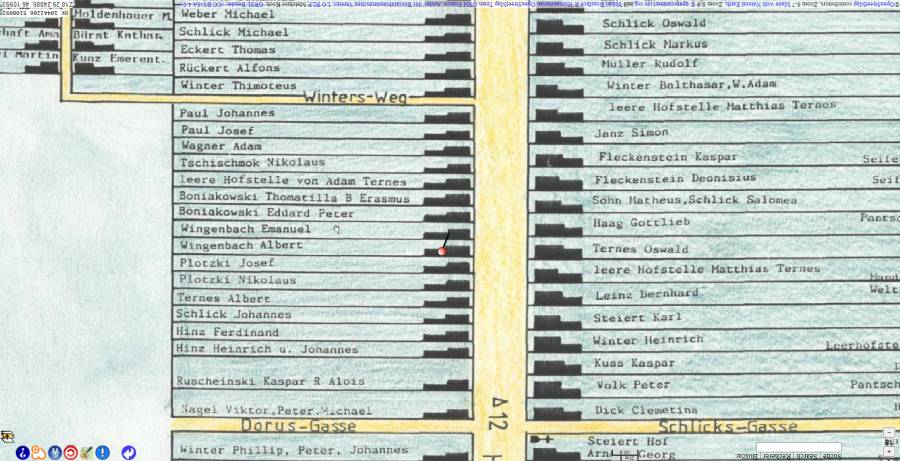 Moldenhauer M.
Bärst Knthar.
Kunz Emerent.
Martin
Weber Michael
Schlick Michael
Eckert Thomas
Rückert Alfons
Winter Thimoteus
Winters-Weg
Paul Johannes
Paul Josef
Wagner Adam
Tschischmok Nikolaus
leere Hofstelle von Adam Ternes
Boniakowski Thomatilla B Erasmus
Boniakowski Eduard Peter
Wingenbach Emanuel
Wingenbach Albert
Plotzki Josef
Plotzki Nikolaus
Ternes Albert
Schlick Johannes
Hinz Ferdinand
Hinz Heinrich u. Johannes
Ruscheinski Kaspar R Alois
Nagel Viktor,Peter,Michael
Dorus-Gasse
Winter Phillip, Peter, Johannes
A12
Schlick Oswald
Schlick Markus
Muller Rudolf
Winter Balthasar,W.Adam
leere Hofstelle Matthias Ternes
Janz Simon
Fleckenstein Kaspar
Fleckenstein Deonisius
Sohn Matheus,Schlick Salomea
Haag Gottlieb
Ternes Oswald
leere Hofstelle Matthias Ternes
Leinz Bernhard
Steiert Karl
Winter Heinrich
Kuss Kaspar
Volk Peter
Dick Clemetina
Schlicks-Gasse
Steiert Hof
Georg
Seife
Seif
Pants
Welt
Leerhofste
Pantsch